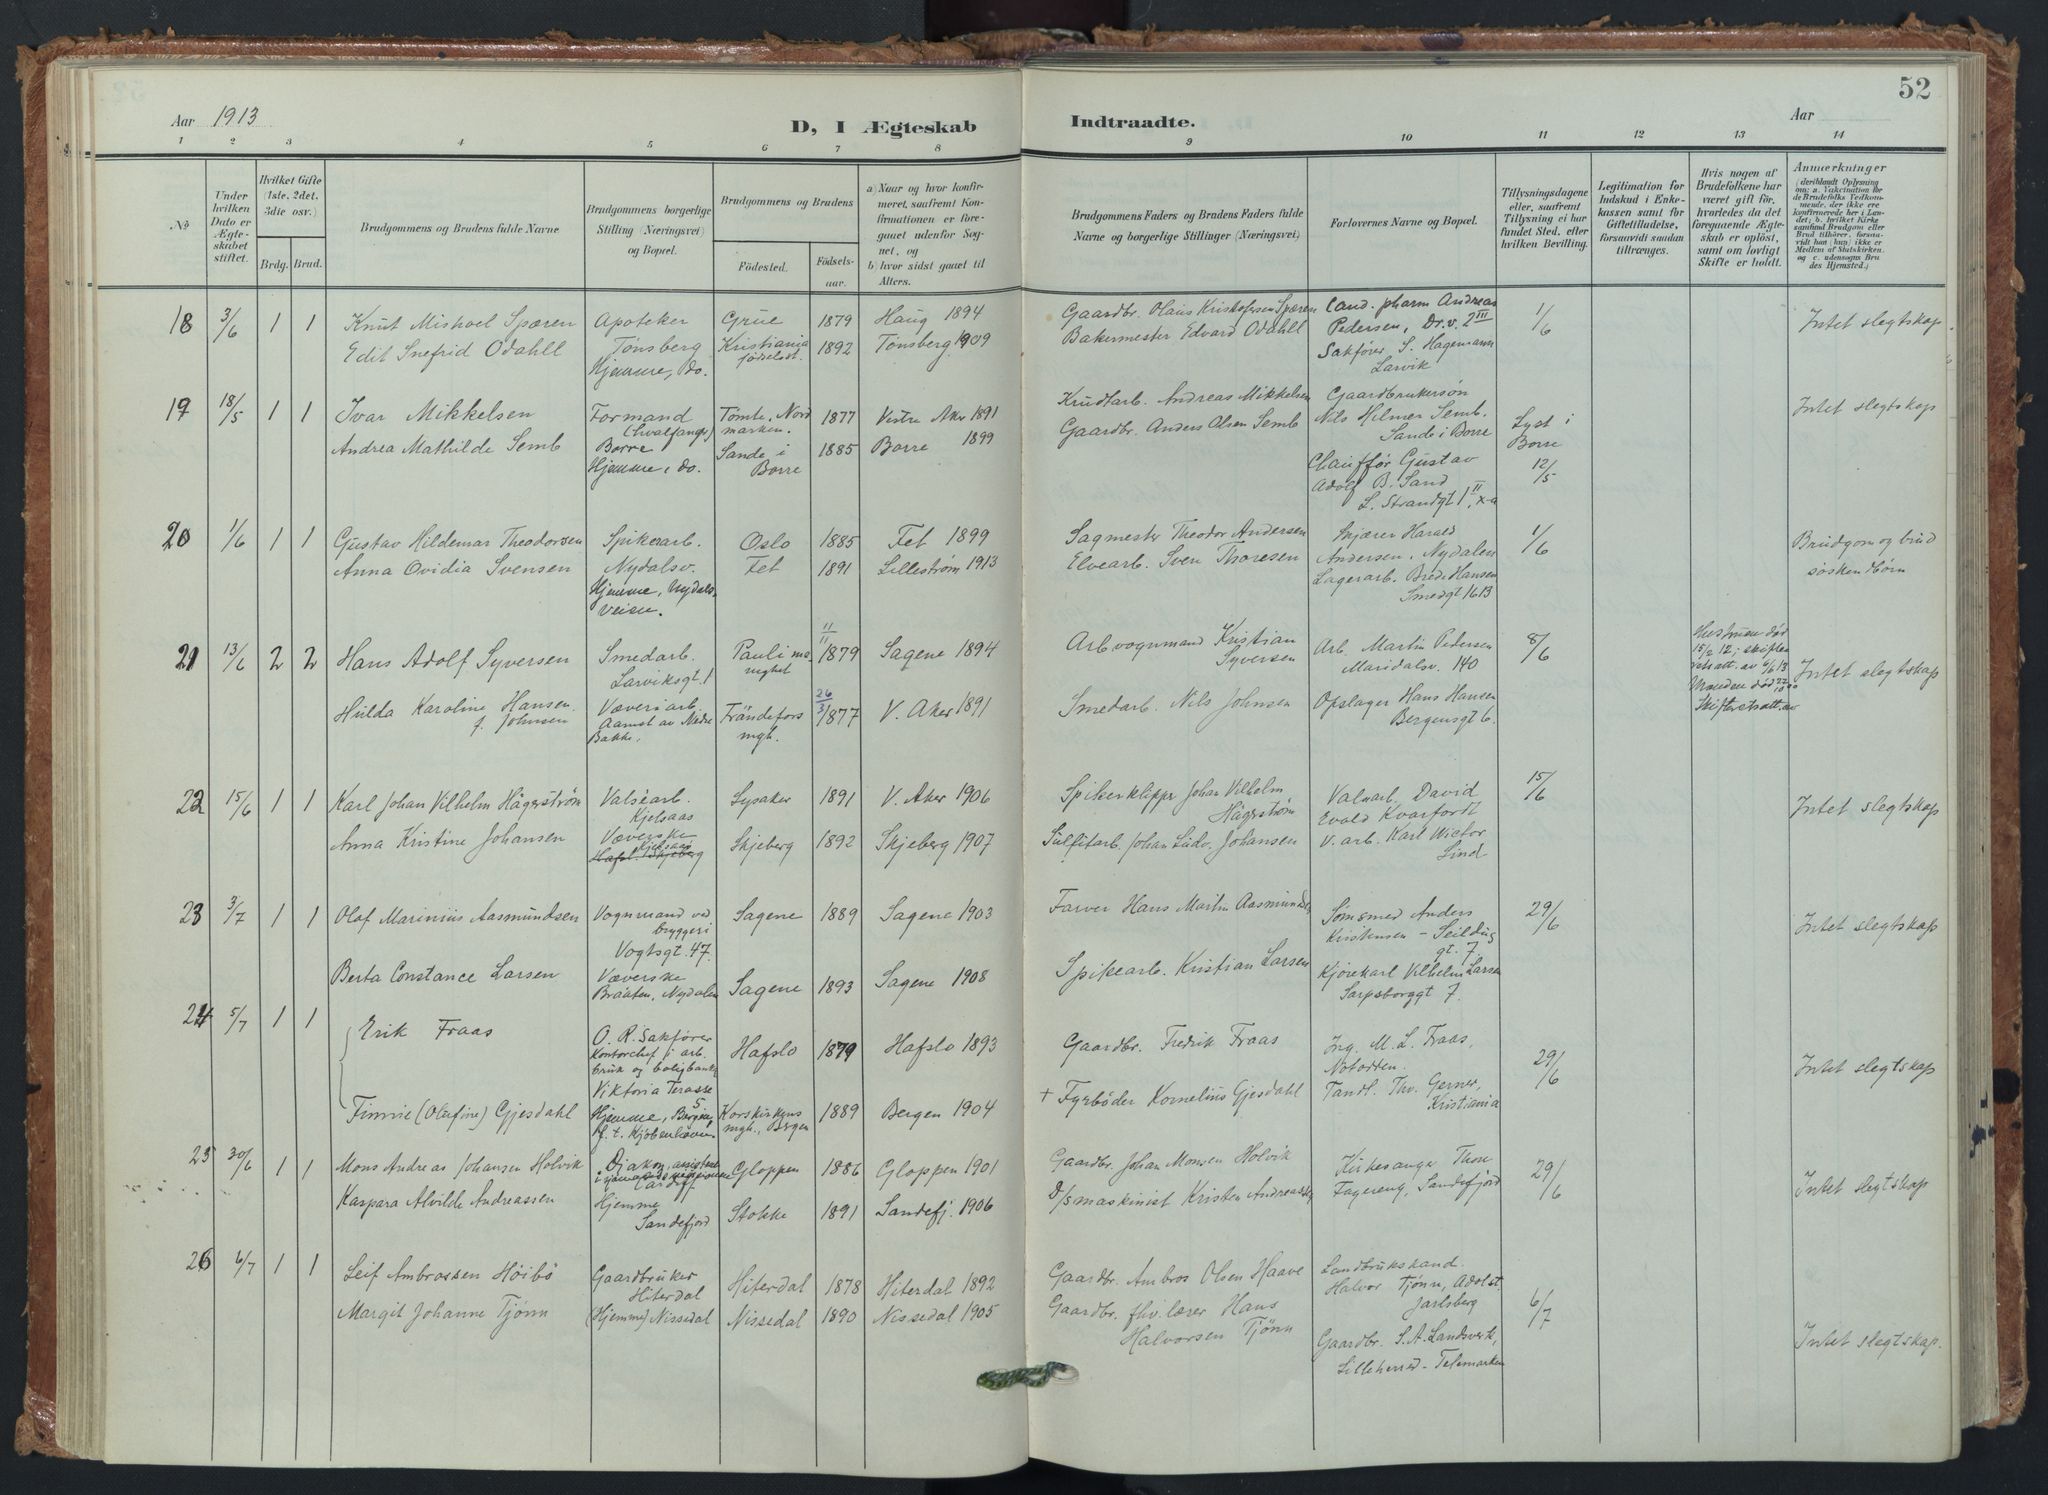 52
Aar 1913
D, I Ægteskab Indtraadte.
Aar
1 2 3 4 5 6 7 8 9 10 11 12 13 14
№
Under hvilken Dato er Ægteskabet stiftet.
Hvilket Gifte (1ste, 2det, 3die osv.)
Brdg. Brud.
Brudgommens og Brudens fulde Navne
Brudgommens borgerlige Stilling (Næringsvei) og Bopæl.
Brudgommens og Brudens
Fødested.
Fødselsaar.
a) Naar og hvor konfirmeret, saafremt Konfirmationen er foregaaet udenfor Sognet, og
b) hvor sidst gaaet til Alters.
Brudgommens Faders og Brudens Faders fulde Navne og borgerlige Stillinger (Næringsvei)
Forlovernes Navne og Bopæl.
Tillysningsdagene eller, saafremt Tillysning ei har fundet Sted, efter hvilken Bevilling.
Legitimation for Indskud i Enkekassen samt for Giftetilladelse, forsaavidt saadan tiltrænges.
Hvis nogen af Brudefolkene har været gift før, hvorledes da det foregaaende Ægteskab er opløst, samt om lovligt Skifte er holdt.
Anmerkninger
(deriblandt Oplysning om: a. Vakcination for de Brudefolks Vedkommende, der ikke ere konfirmerede her i Landet; b. hvilket Kirkesamfund Brudgom eller Brud tilhører, forsaavidt han (hun) ikke er Medlem af Statskirken, og c. udensogns Brudes Hjemsted.)
18 3/6 1 1 Knut Mishoel Spæren Apoteker Grue 1879 Haug 1894 Gaardbr. Olaus Kristofersen Spæren Cand. pharm Andreas 1/6 Intet slegtskap
Edit Snefrid Odahll Tønsberg Kristiania 1892 Tønsberg 1909 Bakermester Edvard Odahll Pedersen, Dr. v. 2 III
Hjemme, do. fødselsst. Sakfører S. Hagemann
Larvik
19 18/5 1 1 Ivar Mikkelsen Formand Tømte, Nord 1877 Vestre Aker 1891 Krudtarb. Andreas Mikkelsen Gaardbrukersøn Intet slegtskap
(hvalfangs) marken. Nils Hilmer Semb. Lyst i
Andrea Mathilde Semb Borre Sande i 1885 Borre 1899 Gaardbr. Anders Olsen Semb Sande i Borre Borre
Hjemme, do. Borre Chaufför Gustav 12/5
Adolf B. Sand
L. Strandgt 1 II, x-a
20 1/6 1 1 Gustav Hildemar Theodorsen Spikerarb. Oslo 1885 Fet 1899 Sagmester Theodor Andersen Skjærer Harald 1/6 Brudgom og brud
Anna Ovidia Svensen Nydalsv. Fet 1891 Lillestrøm 1913 Elvearb. Sven Thoresen Andersen, Nydalen søskenbörn
Hjemme, Nydals- Lagerarb. Brede Hansen
veien. Smedgt 16 B
21 13/6 2 2 Hans Adolf Syversen Smedarb. Pauli me- 11/11 1879 Sagene 1894 Arb. vognmand Kristian Arb. Martin Pedersen 8/6 Hustruen död
Larviksgt. 1 nighet Syversen Maridalsv. 140 15/2 12; skifte
attt. av 6/6 13 Intet slegtskap
Hulda Karoline Hansen Væveriarb. Frändefors 26/3 1877 V. Aker 1891 Smedarb. Nils Johnsen Opslager Hans Hansen Manden död
f. Johnsen Aamot av Nedre mgh. Bergensgt 6. Skifteratt. av
Bakke.
22 15/6 1 1 Karl Johan Vilhelm Hägerström Valsearb. Lysaker 1891 V. Aker 1906 Spikerklippr Johan Vilhelm Valsarb. David 15/6 Intet slegtskap
Kjelsaas Hägerström Evald Kvarfordt
Anna Kristine Johansen Væverske Skjeberg 1892 Skjeberg 1907 Sulfitarb. Johan Ludv. Johansen V. arb. Karl Wictor
Kjelsaas Lind
Hafsl. Skjeberg
23 3/7 1 1 Olaf Marinius Aasmundsen Vognmand ved Sagene 1889 Sagene 1903 Farver Hans Martin Aasmunds Sømsmed Anders 29/6 Intet slegtskap
bryggeri Kristensen - Seildug
Vogtsgt. 47. gt. 7
Berta Constance Larsen Væverske Sagene 1893 Sagene 1908 Spikearb. Kristian Larsen Kjørekarl Vilhelm Larsen
Braaten, Nydalen Sarpsborggt 7.
24 5/7 1 1 Erik Fraas O. R. Sakfører Hafslo 1879 Hafslo 1893 Gaardbr. Fredrik Fraas Ing. M. L. Fraas, 29/6 Intet slegtskap
Kontorchef i arb. Notodden.
bruk og boligbank
Viktoria Terasse 5
Finnie (Olafine) Gjesdahl Hjemme, Bergen, Korskirkens 1889 Bergen 1904 + Fyrbøder Kornelius Gjesdahl Tandl. Thv. Gerner,
f. t. Kjøbenhavn mgh., Bergen Kristiania
25 30/6 1 1 Mons Andreas Johansen Holvik Diakon, assistent Gloppen 1886 Gloppen 1901 Gaardbr. Johan Monsen Holvik Kirkesanger Thore 29/6 Intet slegtskap
i sjømandsmissionen Fagereng, Sandefjord
Cardiff
Kaspara Alvilde Andreassen Hjemme Stokke 1891 Sandefj. 1906 D/s maskinist Kristen Andreassen
Sandefjord
26 6/7 1 1 Leif Ambrossen Höibö Gaardbruker Hiterdal 1878 Hiterdal 1892 Gaardbr. Ambros Olsen Haave Landbrukskand.
Hiterdal Halvor Tjønn, Adolst.
Margit Johanne Tjønn (Hjemme) Nissedal Nissedal 1890 Nissedal 1905 Gaardbr. fhv. lærer Hans Jarlsberg 6/7
Halvorsen Tjønn Gaardbr. S. A. Landsverk, Intet slegtskap.
Lilleherred - Telemarken